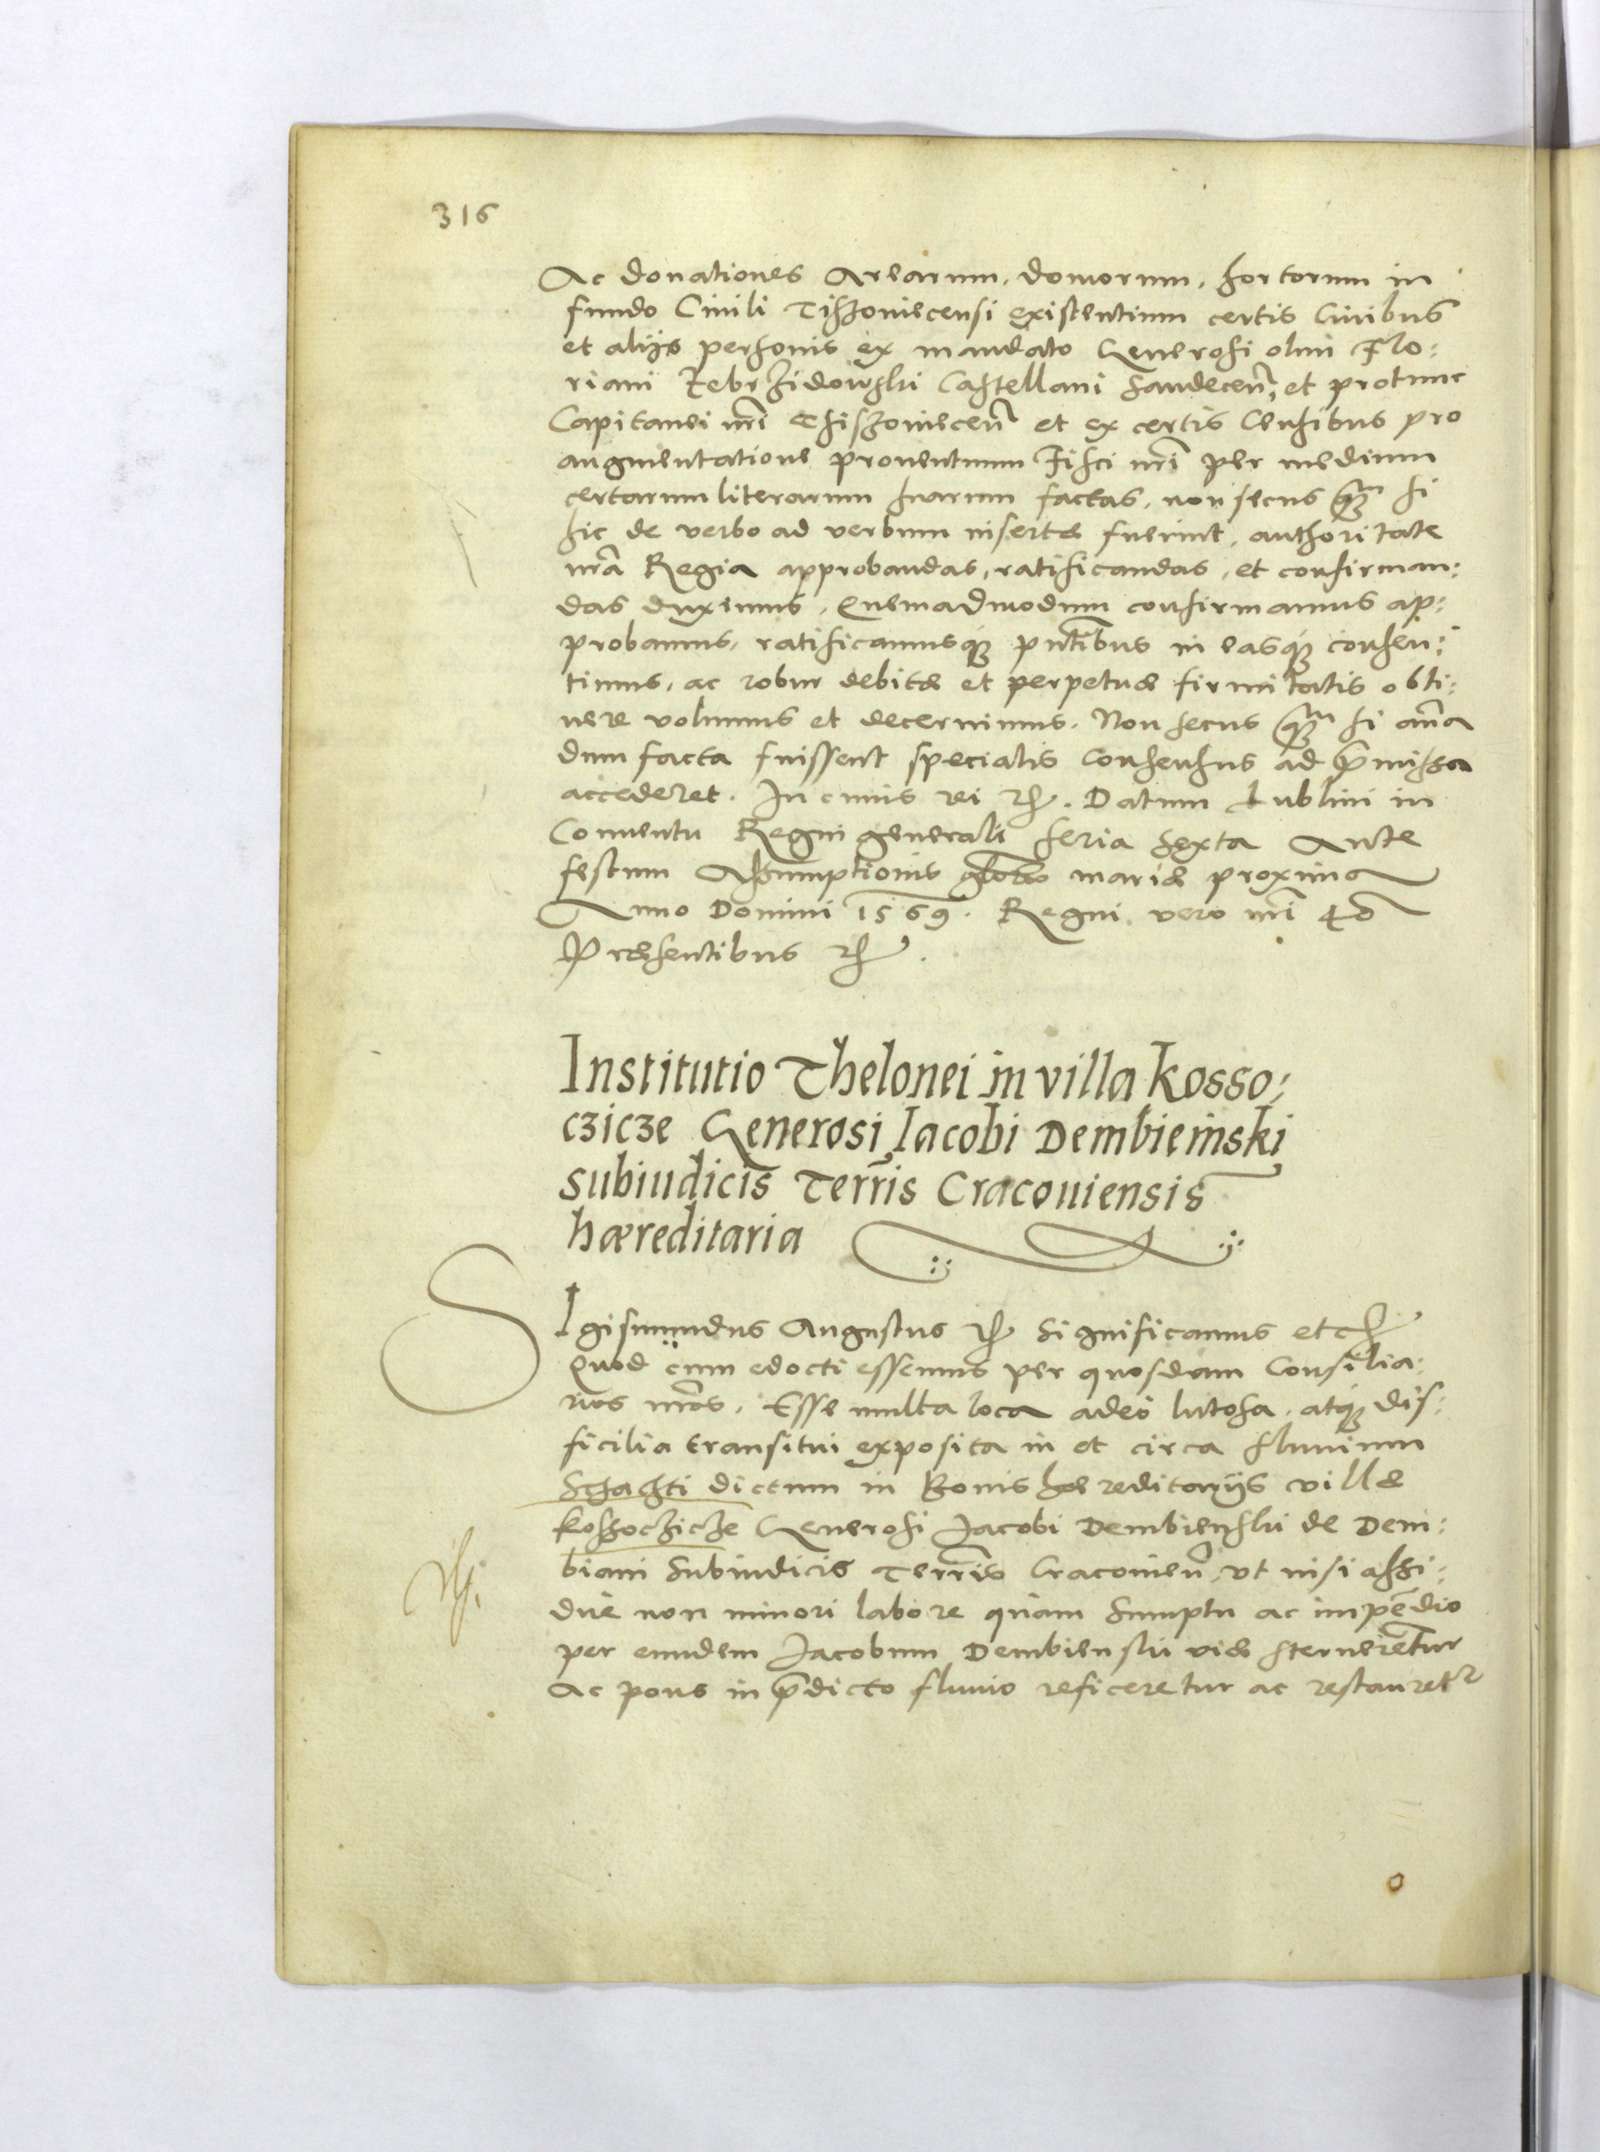 316
Ac donationes Arearum, domorum, hortorum in
fundo Ciuili Tiszouiecensi existentium certis Ciuibus
et alijs personis ex mandato Generosi olim Flo:
riani Zebrzidowski Castellani Sandeceñ, et protunc
Capitanei nr̃i Thiszouieceñ et ex certis Censibus pro
augmentatione prouentuum Fisci nr̃i per medium
certarum literarum suarum factas, non secus q̃m si
hic de verbo ad verbum insertæ fuerint, authoritate
nr̃a Regia approbandas, ratificandas, et confirman:
das duximus, Quemadmodum confirmamus ap:
probamus, ratificamusq̃ pñtibus in easq̃ consen:
timus, ac robur debitæ et perpetuæ firmitatis obti:
nere volumus et decernimus. Non secus q̃m si
dum facta fuissent specialis Consensus ad p̃missa
accederet. In cuius rei &c. Datum Lublini in
Conuentu Regni generali feria sexta Ante
festum Assumptionis mariæ proxima
Anno Domini 1569. Regni vero nr̃i 40
Præsentibus &c.
Institutio Thelonei in villa Kosso:
czicze Generosi Iacobi Dembieinski
subiudicis Terr̃is Cracouiensis
hæreditaria
SIgismundus Augustus &c Significamus etc
Quod cum edocti essemus per quosdam Consilia:
rios nr̃os, Esse multa loca adeo lutosa, atq̃ dif:
ficilia transitui exposita in et circa fluuium
dictum in Bonis hæreditarijs villæ
Koszocziczie Generosi Jacobi Dembienski de Dem:
biani Subiudicis Terr̃is Cracouieñ, vt nisi assi:
due non minori labore quam Sumptu ac impẽdio
per eundem Jacobum Dembienski viæ sternerẽtur
Ac pons in p̃dicto fluuio reficeretur ac restauretr